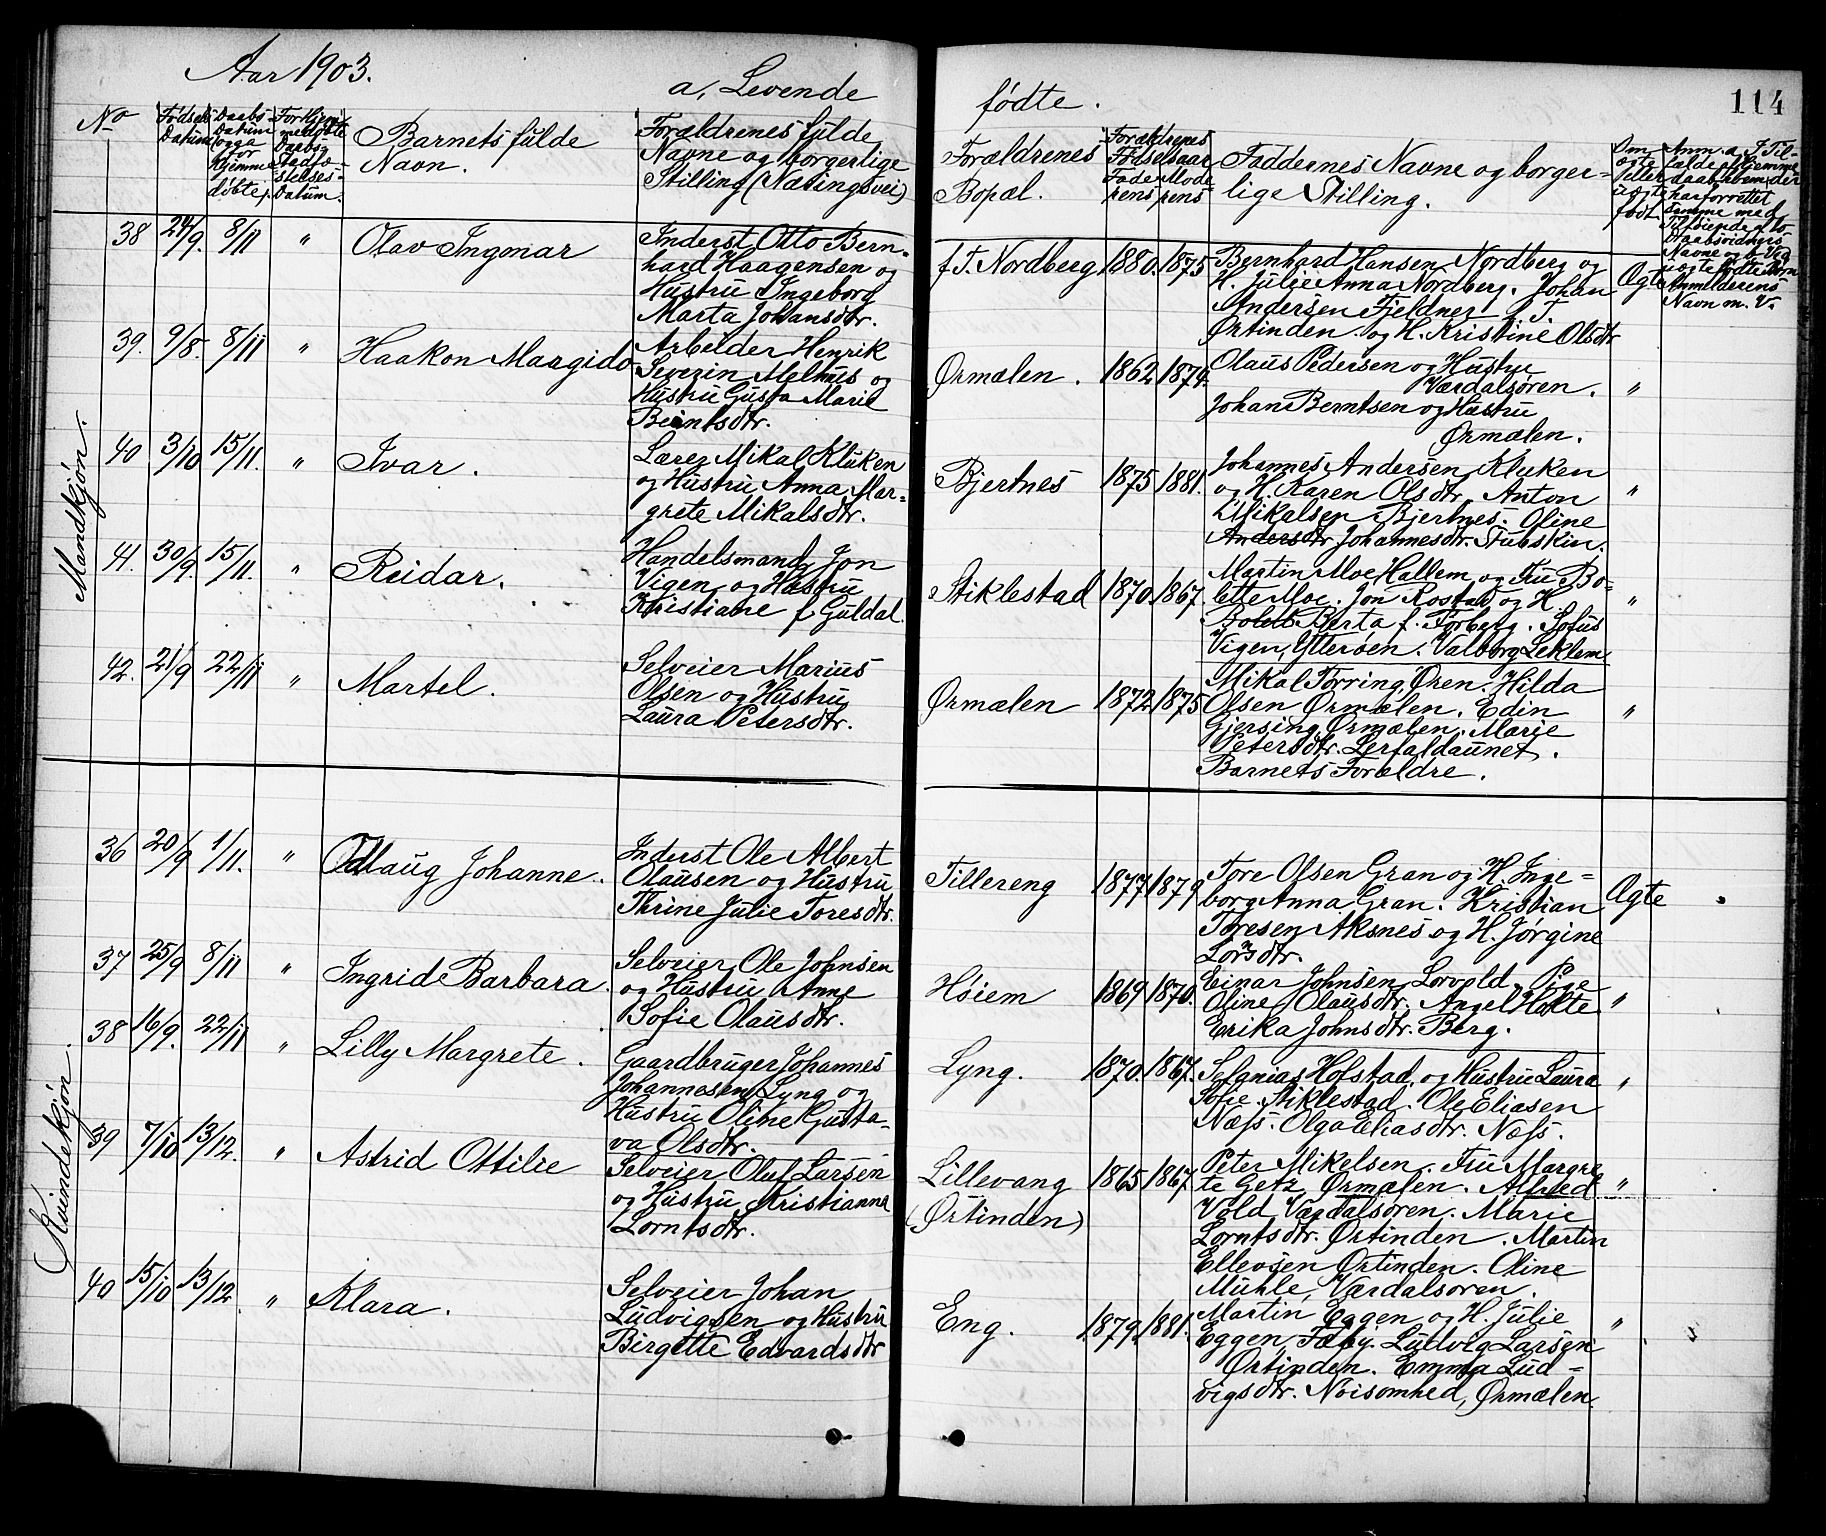 Aar 1903.
a, Levende fødte.
114
No
Fødsels Datum
Daabs-
Datum
(ogga
for
Hjemme-
døbte).
For Hjem-
medøbte
Daabs
Stadfæ-
stelses-
Datum.
Barnets fulde
Navn.
Forældrenes fulde
Navne og borgerlige
Stilling (Næringsvei)
Forældrenes
Bopæl.
Forældrenes
Fødselsaar
Fade-
rens
Mode-
rens
Faddernes Navne og borger-
lige Stilling.
Om
ægte
eller
uægte
født
Anm. a, I Til-
fælde af Hjemme-
daab, hvem der
har forrettet
samme med
Tilføiende af to
Daabsvidners
Navne og b, Ved
uægte fødte Børn
Anmelderens
Navn m. V.
Mandkjøn.
38 24/9. 8/11 " Olav Ingmar
Inderst Otto Bern-
hard Haagensen og
Hustru Ingeborg
Marta Johansdtr.
f. T. Nordberg 1880. 1875
Bernhard Hansen Nordberg og
H. Julie Anna Nordberg. Johan
Andersen Fjeldner f. T.
Ørtinden og H. Kristine Olsdtr
Ægte
39. 9/8. 8/11 " Haakon Maagido
Arbeider Henrik
Severin Melhus og
Hustru Gusta Marie
Berntsdtr.
Ørmælen. 1862 1874.
Olaus Pedersen og Hustru
Værdalsøren.
Johan Berntsen og Hustru
Ørmælen.
"
40 3/10 15/11. " Ivar.
Lærer Mikal Kluken
og Hustru Anna Mar-
grete Mikalsdtr.
Bjertnes 1875 1881.
Johannes Andersen Kluken
og H. Karen Olsdtr. Anton
Mikalsen Bjertnes. Oline
Andersdtr. Johannesdtr. Stubskin.
"
41. 30/9. 15/11. " Reidar.
Handelsmand Jon
Vigen og Hustru
Kristiane f. Guldal.
Stiklestad 1870. 1867.
Martin Moe Hallem og Fru Bo-
lette Moe. Jon Rostad og H.
Bolett Berta f. Forberg. Sofus
Vigen, Ytterøen. Valborg Leklem
"
42. 21/9 22/11 " Martel.
Selveier Marius
Olsen og Hustru
Laura Petersdtr.
Ørmælen 1872 1875
Mikal Førring Øren. Hilda
Olsen Ørmælen. Edin
Gjersing Ørmælen. Marie
Petersdtr. Lerfaldaunet.
Barnets Forældre.
"
Kvindekjøn.
36 20/9 1/11. " Odlaug Johanne.
Inderst Ole Albert
Olausen og Hustru
Thrine Julie Toresdtr.
Tillereng 1877. 1879.
Tore Olsen Gran og H. Inge-
borg Anna Gran. Kristian
Toresen Aksnes og H. Jørgine
Larsdtr.
Ægte
37 25/9 8/11 " Ingrid Barbara.
Selveier Ole Johnsen
og Hustru Anne
Sofie Olausdtr.
Høiem 1869 1870.
Einar Johnsen Lovold. Pige
Oline Olausdtr. Angel Holte
Erika Johnsdtr. Berg.
"
38 16/9. 22/11 " Lilly Margrete.
Gaardbruger Johannes
Johannesen Lyng og
Hustru Oline Gusta-
va Olsdtr.
Lyng. 1870. 1867.
Sefanias Hofstad og Hustru Laura
Sofie. Stiklestad. Ole Eliasen
Næss. Olga Eliasdtr. Næss.
"
39 7/10 13/12. " Astrid Ottilie
Selveier Oluf Larsen
og Hustru Kristianna
Lorntsdtr.
Lillevang
(Ørtinden) 1865 1867.
Peter Mikelsen. Fru Margre
te Getz Ørmælen. Alfred
Vold Værdalsøren. Marie
Lorntsdtr. Ørtinden. Martin
Ellevsen Ørtinden. Oline
Muhle, Værdalsøren.
"
40 15/10 13/12. " Klara.
Selveier Johan
Ludvigsen og Hustru
Birgitte Edvardsdtr
Eng. 1879. 1881.
Martin Eggen og H. Julie
Eggen, Fæby. Ludvig Larsen
Ørtinden. Emma Lud-
vigsdtr. Noisomhed, Ørmælen.
"